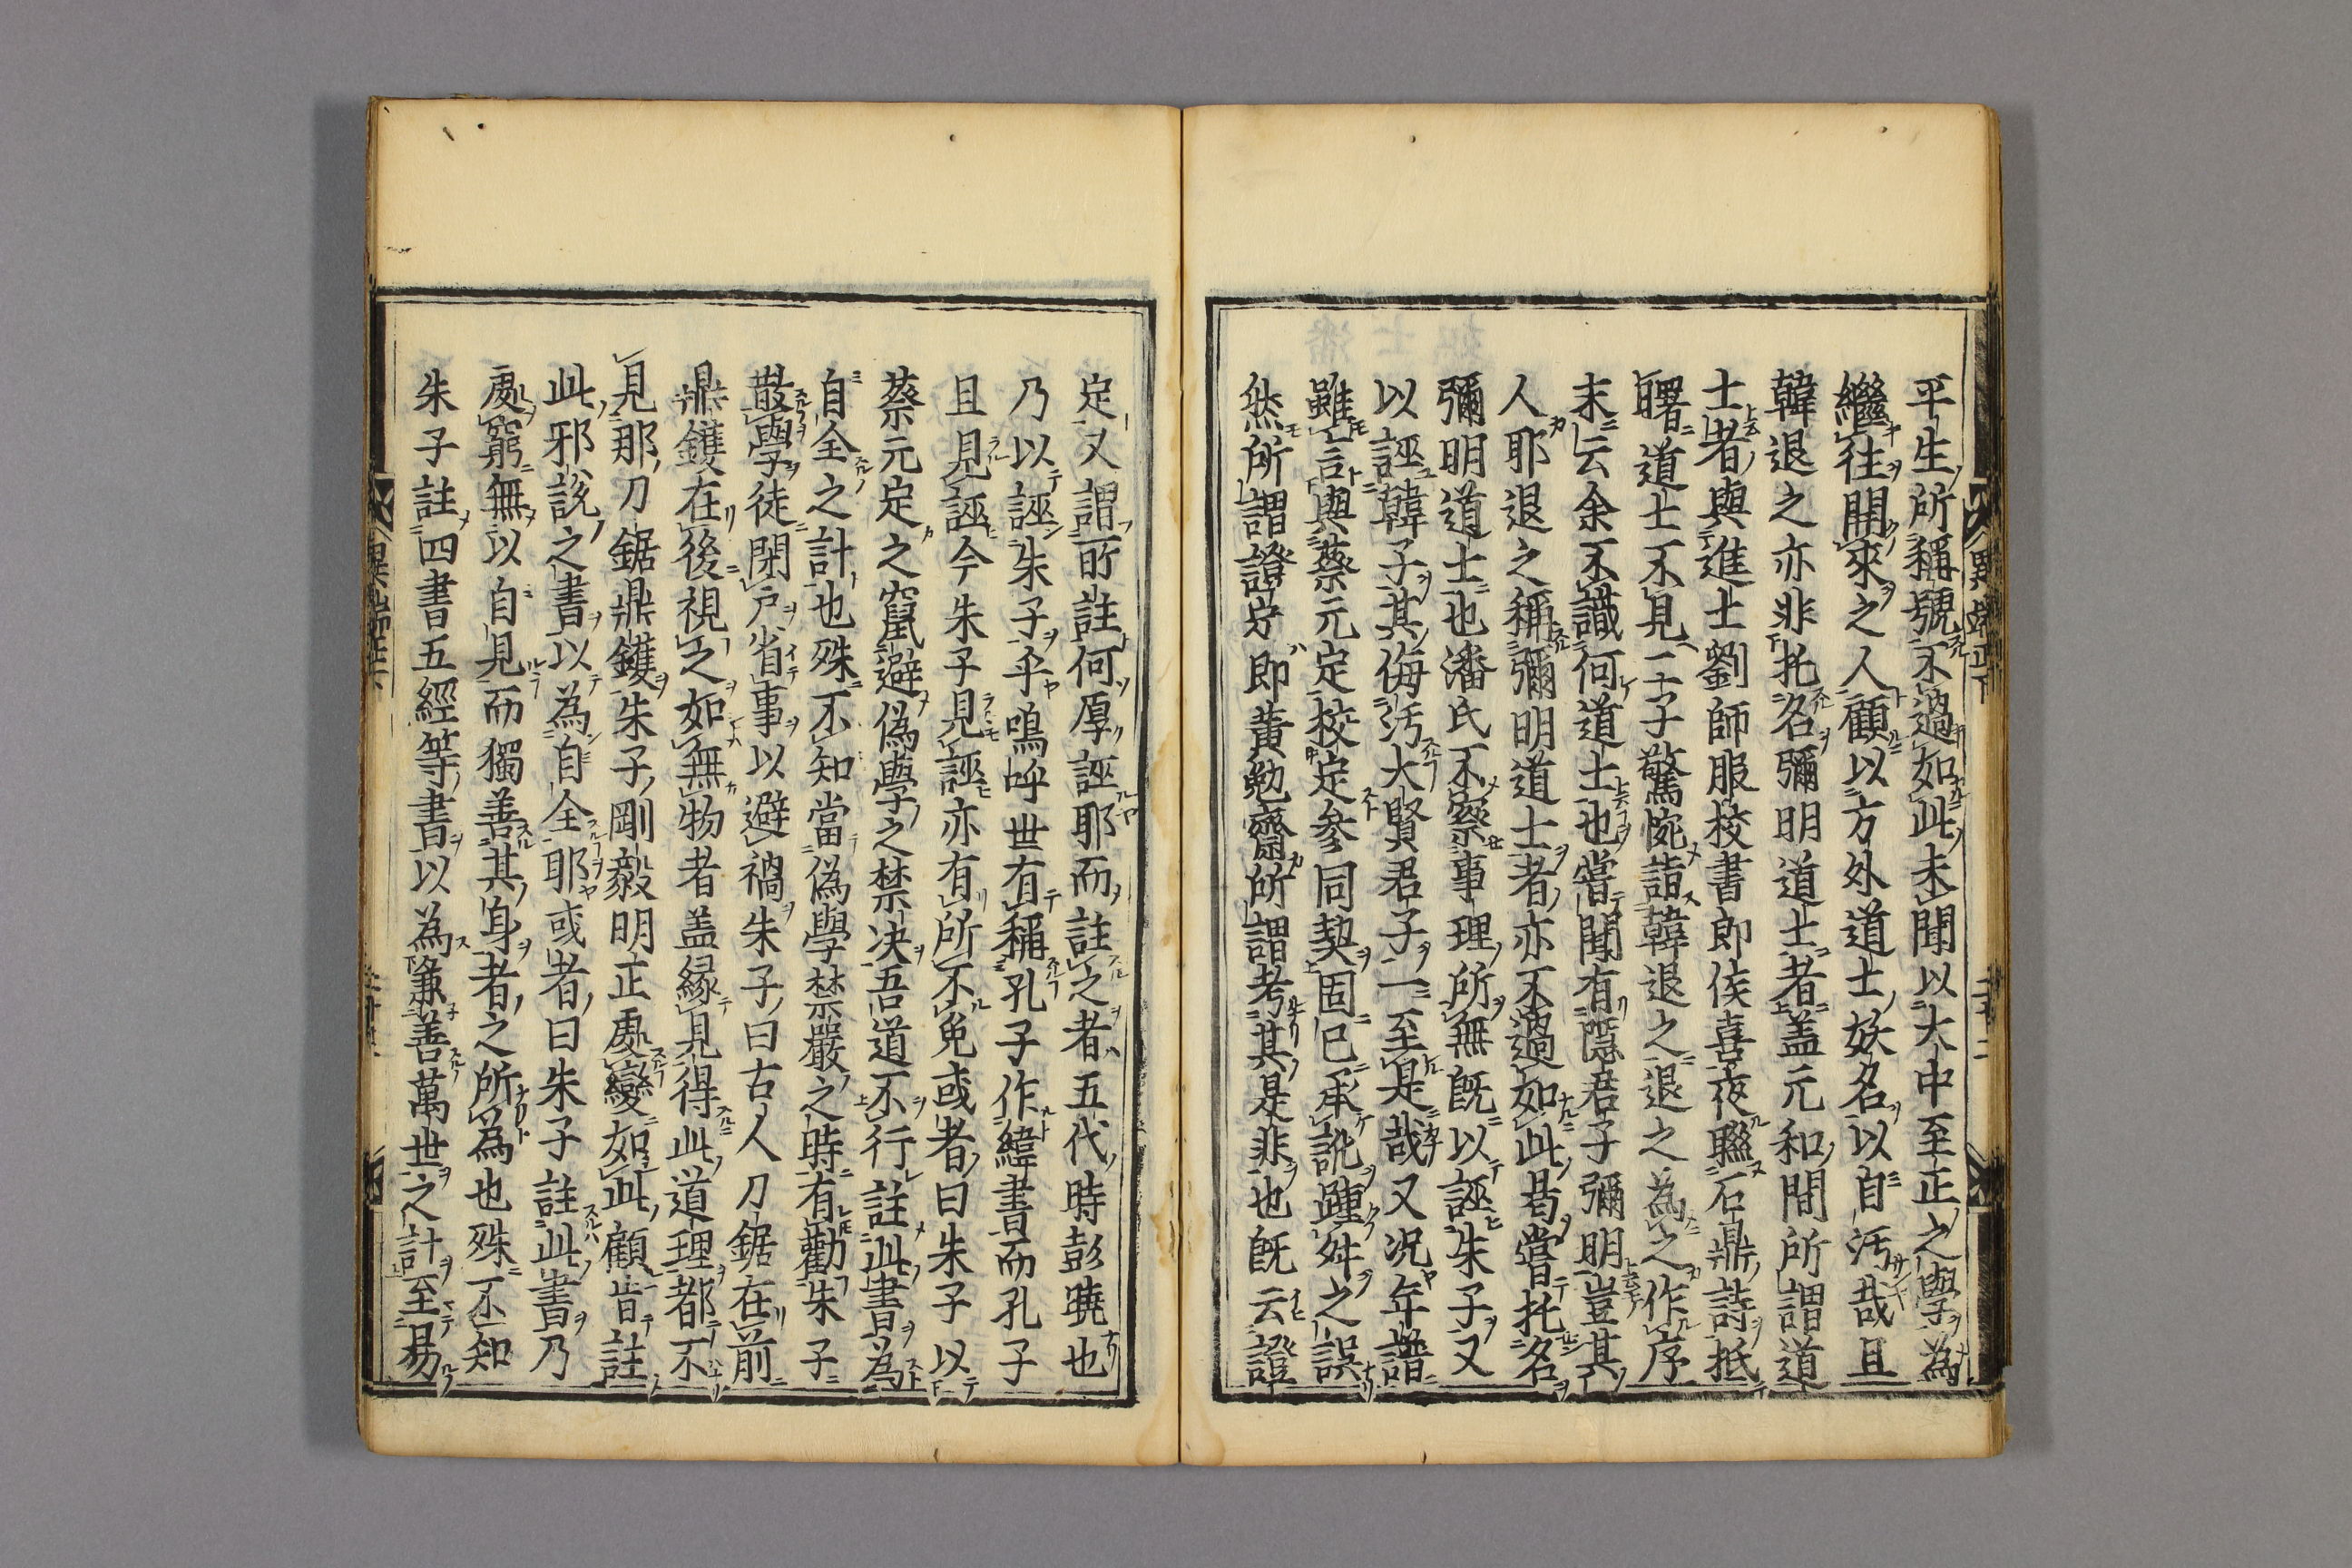 平生所稱號不過如此未聞以大中至正之學為
繼往開來之人顧以方外道士妖名以自汚哉且
韓退之亦非托名彌明道士者盖元和間所謂道
士者與進士劉師服校書郎侯喜夜聮石鼎詩抵
曙道士不見二子驚惋詣韓退之退之為之作序
末云余不識何道士也嘗聞有隱君子彌明豈其
人耶退之稱彌明道士者亦不過如此曷嘗托名
彌明道士也潘氏不察事理所無既以誣朱子又
以誣韓子其侮汚大賢君子一至是哉又况年譜
雖言與蔡元定校定參同契固已承訛踵舛之誤
然所謂證定即黄勉齋所謂考其是非也既云證
定又謂所註何厚誣耶而註之者五代時彭曉也
乃以誣朱子乎嗚呼世有稱孔子作緯書而孔子
且見誣今朱子見誣亦有所不免或者曰朱子以
蔡元定之竄避偽學之禁决吾道不行註此書為
自全之計也殊不知當偽學禁嚴之時有勸朱子
散學徒閉戸省事以避禍朱子曰古人刀鋸在前
鼎鑊在後視之如無物者盖縁見得此道理都不
見那刀鋸鼎鑊朱子剛毅明正處變如此顧肯註
此邪說之書以為自全耶或者曰朱子註此書乃
處窮無以自見而獨善其身者之所為也殊不知
朱子註四書五經等書以為兼善萬世之計至易